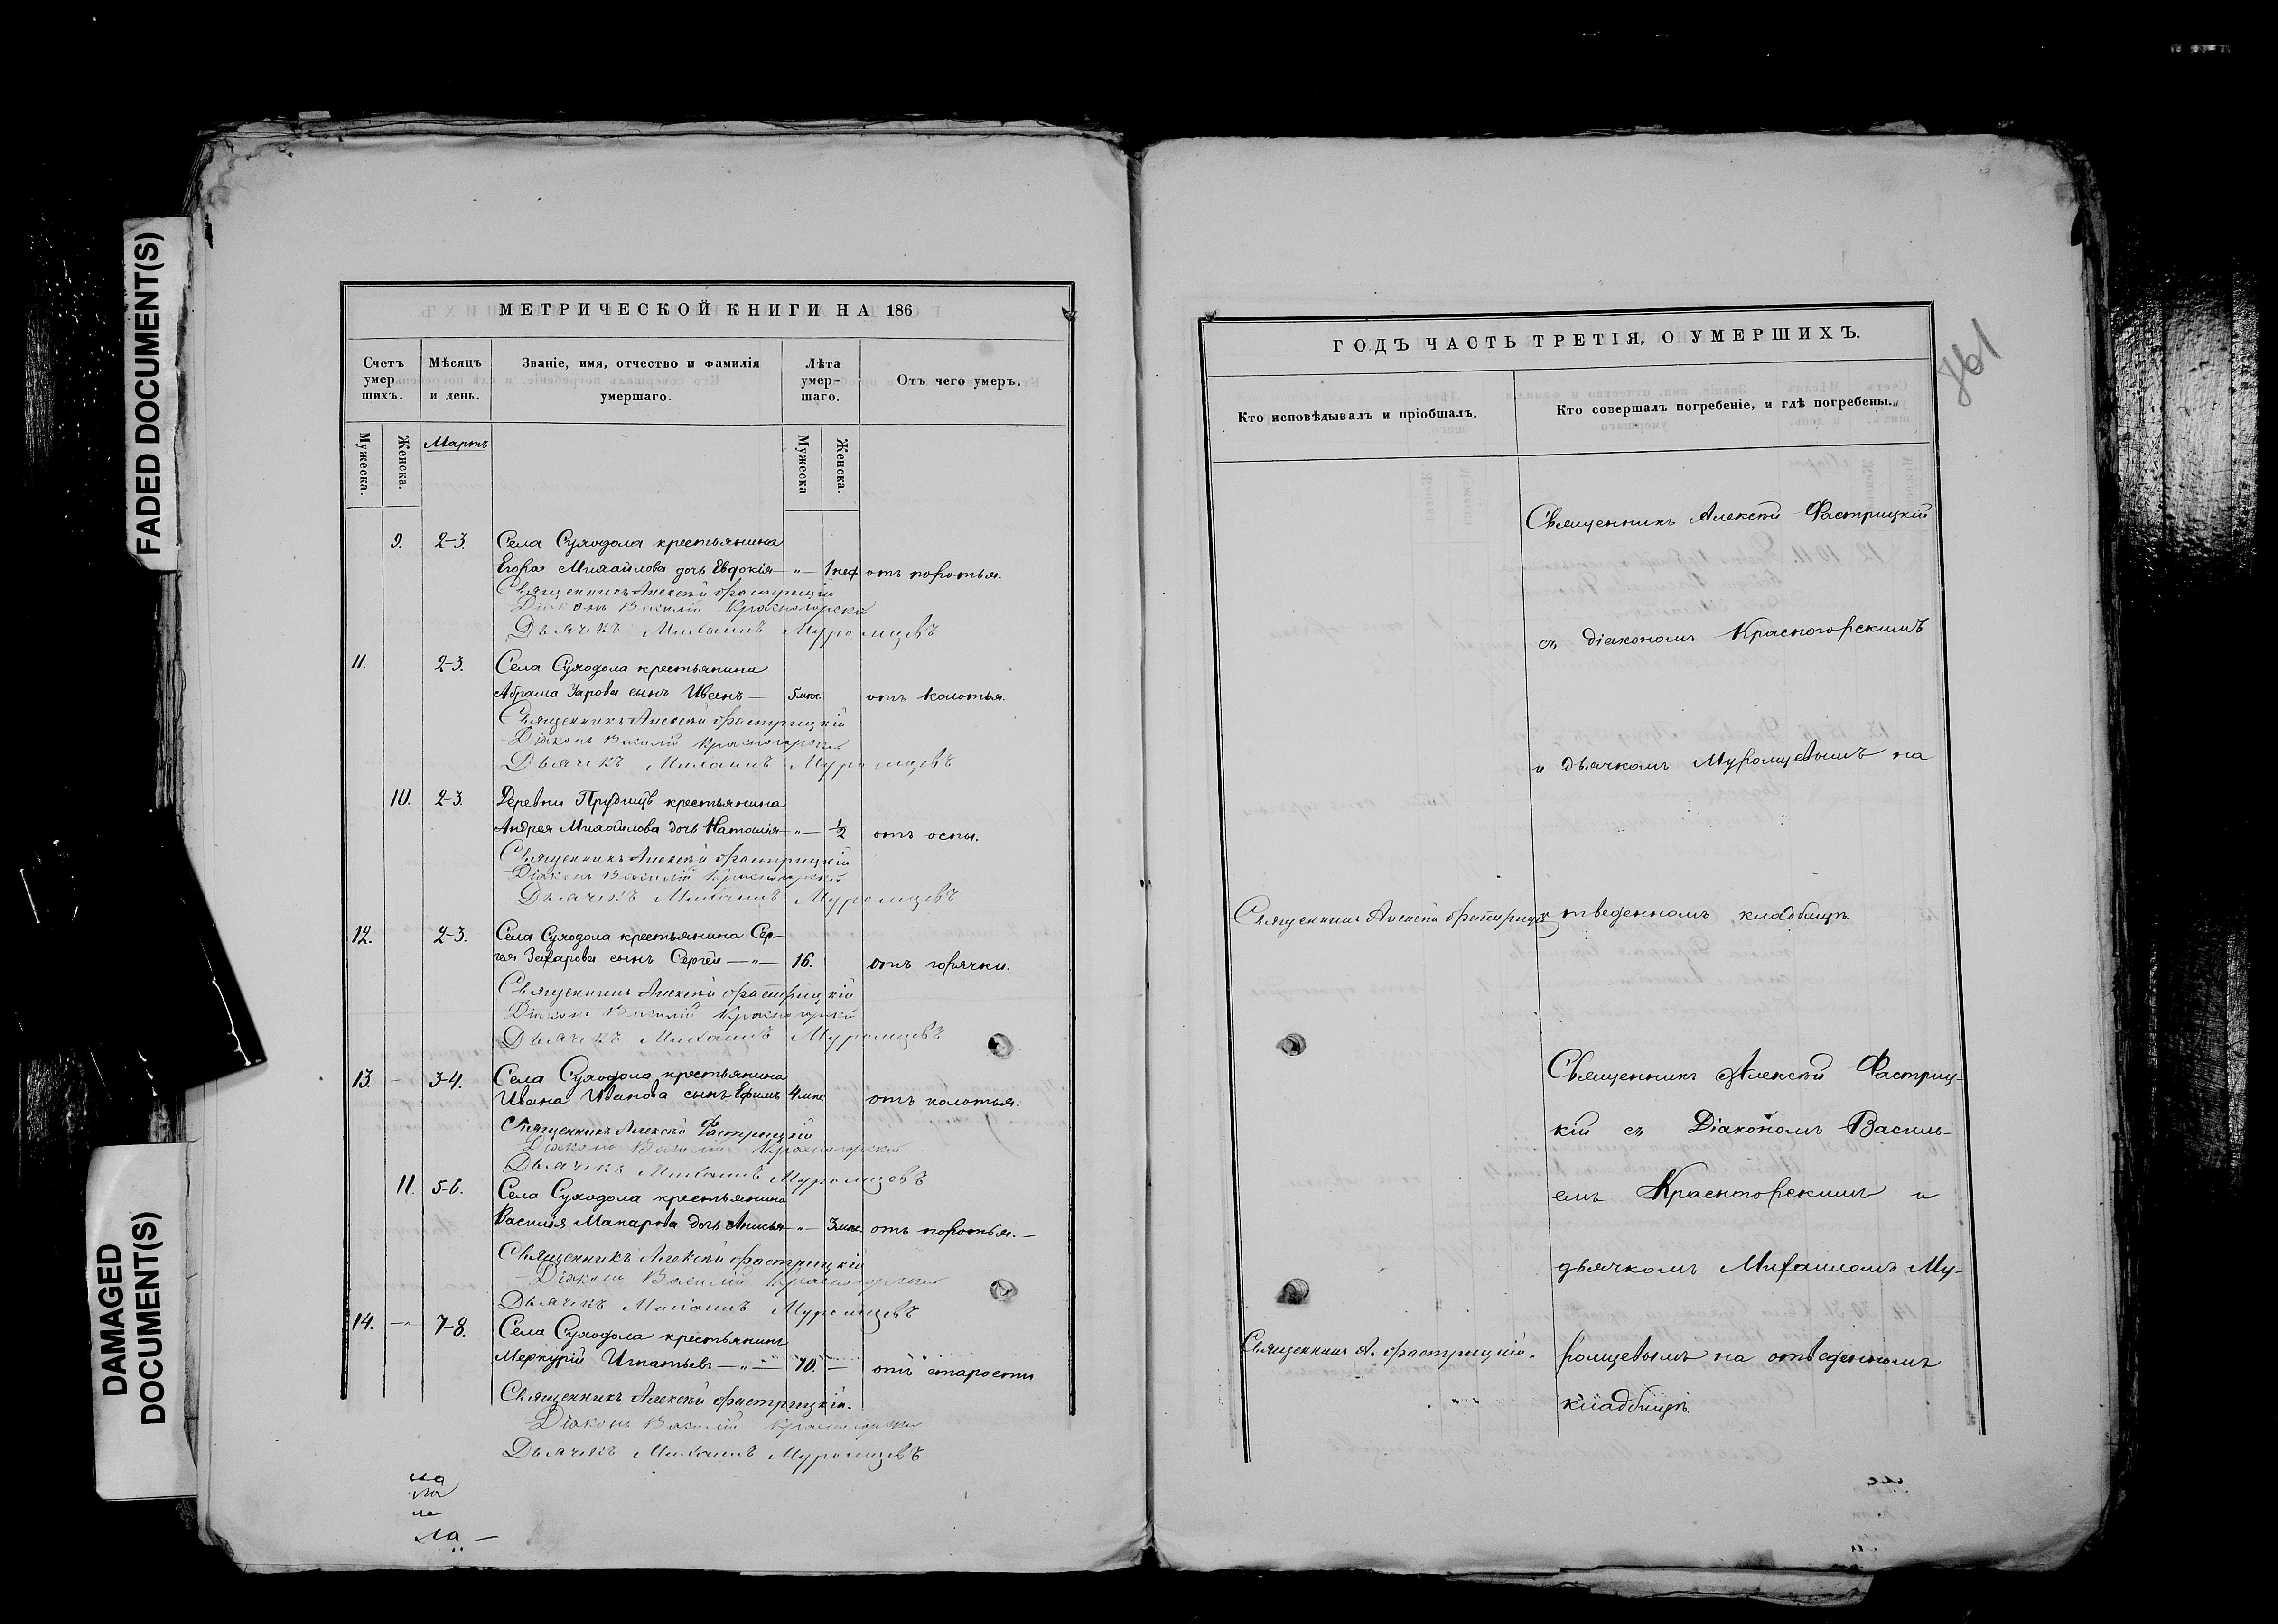 FADED DOCUMENT(S)
DAMAGED
DOCUMENT(S)
МЕТРИЧЕСКОЙ КНИГИ НА 186
Счетъ умер-шихъ.
Мѣсяцъ и день.
Званіе, имя, отчество и фамилія умершаго.
Лѣта умер-шаго.
Отъ чего умеръ.
Мужеска.
Женска.
Мартъ
Мужеска
Женска.
9. 2-3. Села Суходола крестьянина
Егора Михайлова дочь Евдокія — „ — 1 нед отъ поротья.
Священникъ Алексѣй Фастрицкій
Діаконъ Василій Красногорскій
Дьячекъ Михаилъ Муромцевъ
11. 2-3. Села Суходола крестьянина
Абрама сынъ Иванъ — 5 мѣс. отъ колотья.
Священникъ Алексѣй Фастрицкій
Діаконъ Василій Красногорскій
Дьячекъ Михаилъ Муромцевъ
10. 2-3. Деревни Прудищъ крестьянина
Андрея Михайлова дочь Наталія — „ — 1/2 отъ оспы.
Священникъ Алексѣй Фастрицкій
Діаконъ Василій Красногорскій
Дьячекъ Михаилъ Муромцевъ
12. 2-3. Села Суходола крестьянина Сер-
гея Захарова сынъ Сергей — „ — 16. отъ горячки.
Священникъ Алексѣй Фастрицкій
Діаконъ Василій Красногорскій
Дьячекъ Михаилъ Муромцевъ
13. — 3-4. Села Суходола крестьянина
Ивана Иванова сынъ Ефимъ 4 мѣс отъ колотья.
Священникъ Алексѣй Фастрицкій
Діаконъ Василій Красногорскій
Дьячекъ Михаилъ Муромцевъ
11. 5-6. Села Суходола крестьянина
Василія Макарова дочь Анисья — „ — 3 мѣс. отъ поротья. —
Священникъ Алексѣй Фастрицкій
Діаконъ Василій Красногорскій
Дьячекъ Михаилъ Муромцевъ
14. — „ — 7-8. Села Суходола крестьянинъ
Меркурій Игнатьевъ — „ — 70. — отъ старости
Священникъ Алексѣй Фастрицкій.
Діаконъ Василій Красногорскій
Дьячекъ Михаилъ Муромцевъ
ГОДЪ ЧАСТЬ ТРЕТІЯ, О УМЕРШИХЪ.
761
Кто исповѣдывалъ и пріобщалъ.
Кто совершалъ погребеніе, и гдѣ погребены.
Священникъ Алексѣй Фастрицкій
съ діакономъ Красногорскимъ
и дьячкомъ Муромцевымъ на
Священникъ Алексѣй Фастрицкій
отведенномъ кладбищѣ.
Священникъ Алексѣй Фастриц-
кій съ Діакономъ Василь-
емъ Красногорскимъ и
дьячкомъ Михаиломъ Му-
Священникъ А. Фастрицкій.
ромцевымъ на отведенномъ
кладбищѣ.